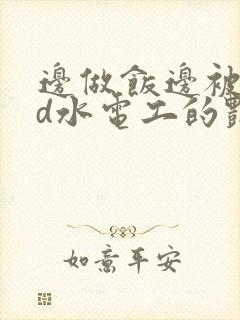 邊做飯邊被
d水電工的
如意平安